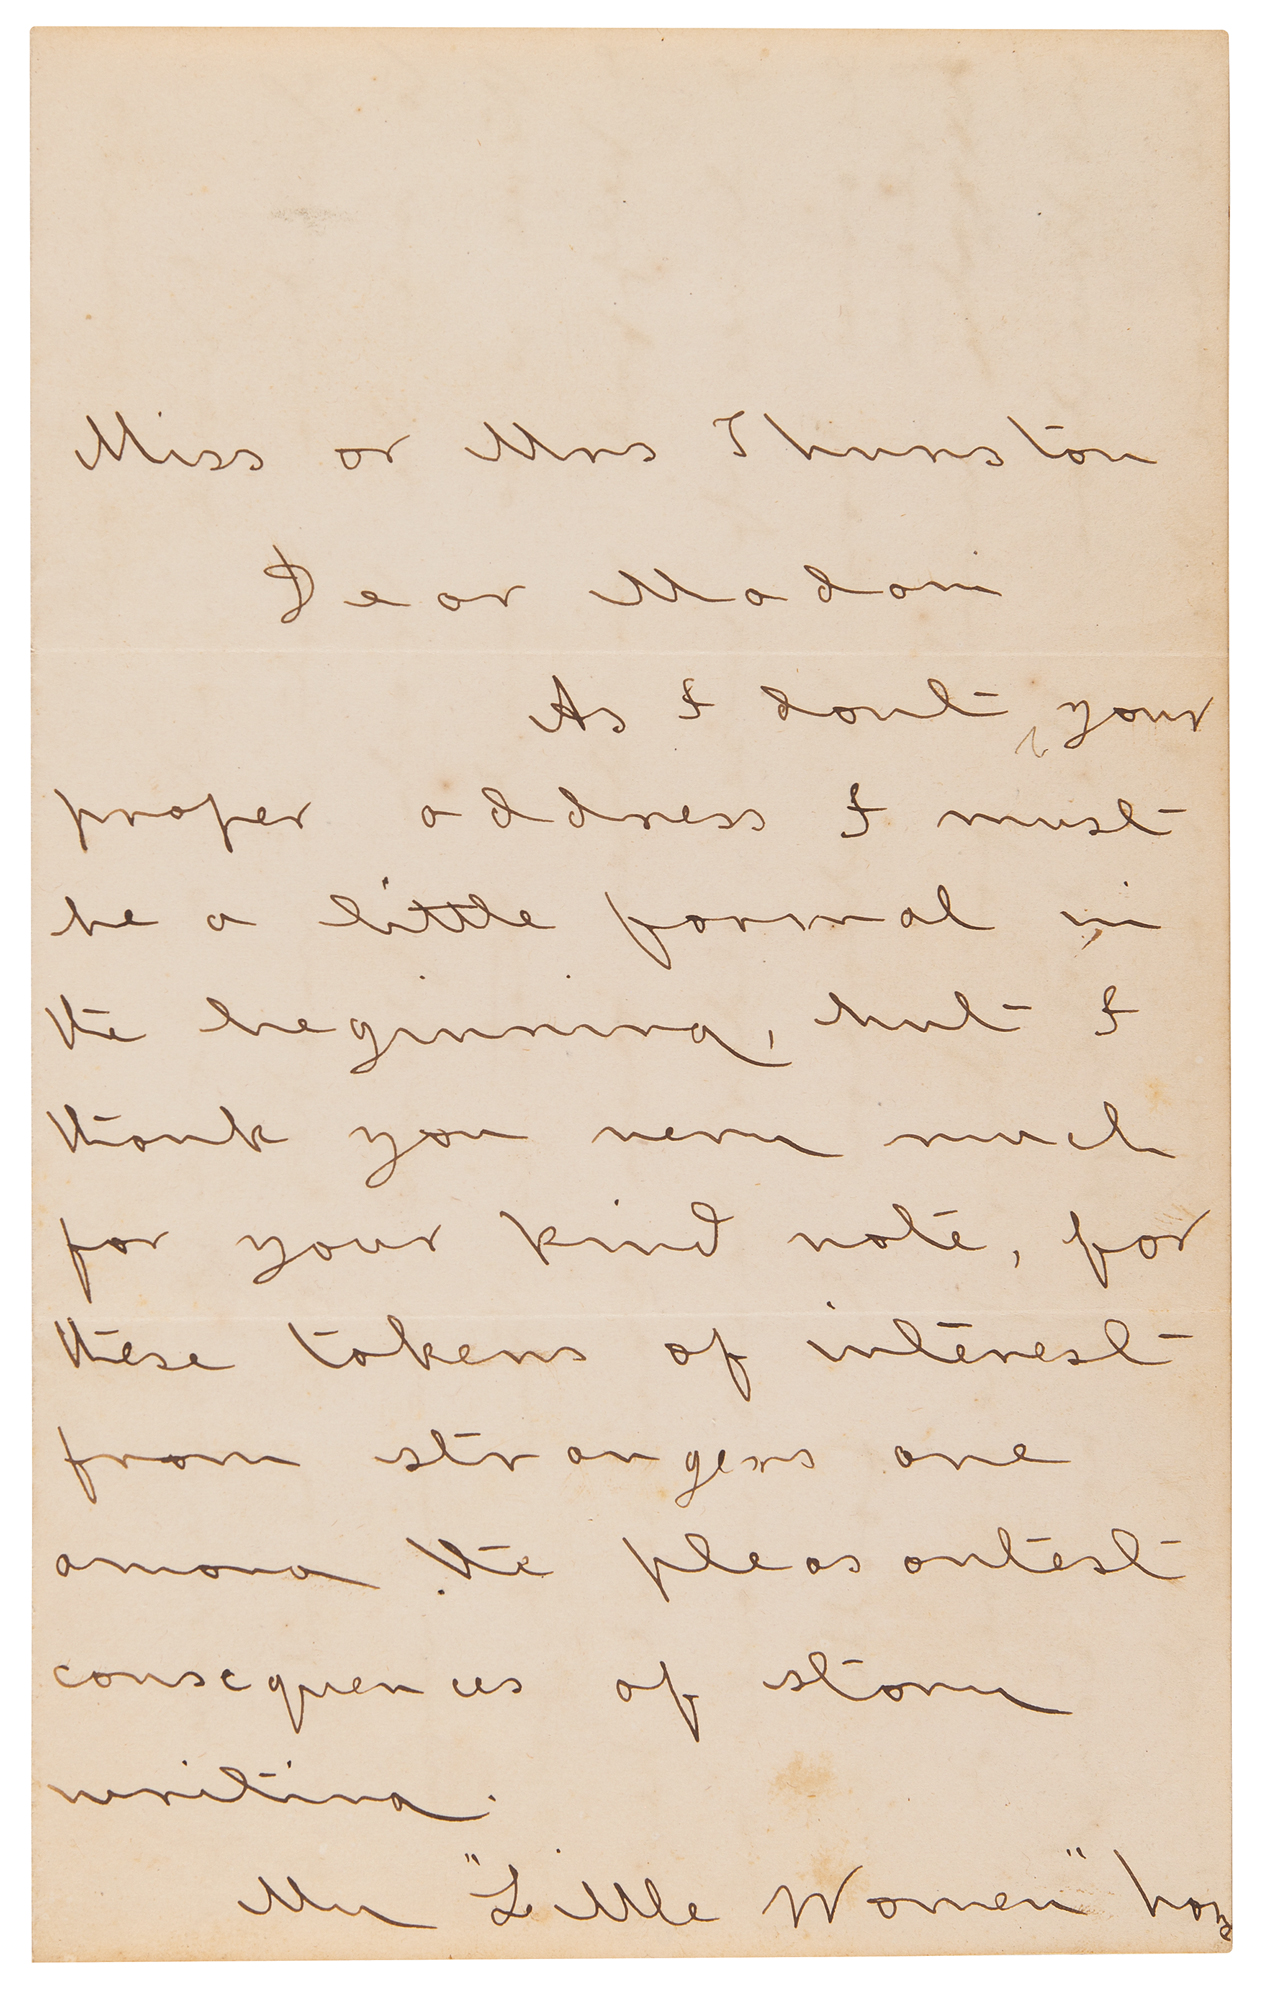 Miss or Mrs Thurston
Dear Madam
As I dont your
proper address I must
be a little formal in
the beginning, but I
thank you very much
for your kind note, for
these tokens of interest
from strangers are
among the pleasantest
consequences of story
writing.
My "Little Women" have